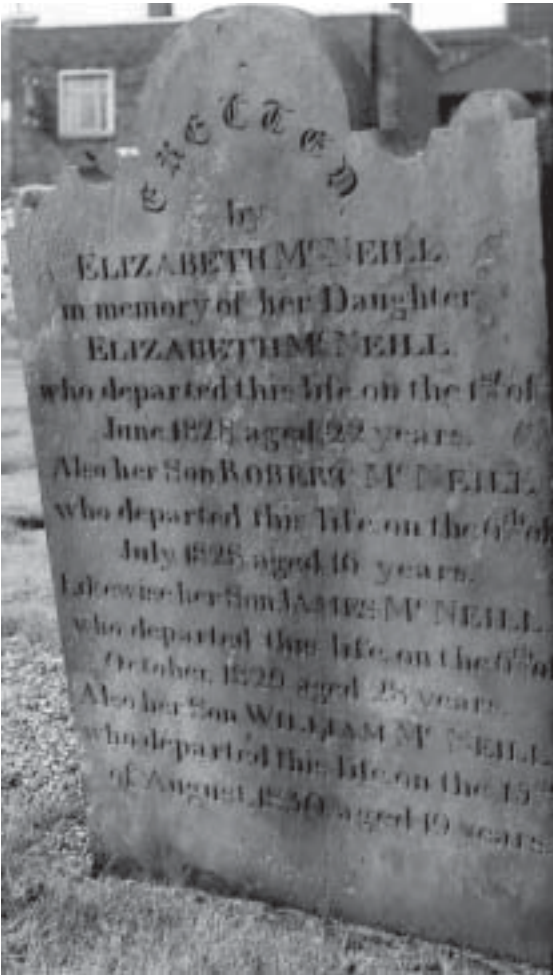 ERECTED
by
ELIZABETH Mc NEILL
in memory of her Daughter
ELIZABETH Mc NEILL
who departed this life on the 1st of
June 1828 aged 22 years.
Also her Son ROBERT Mc NEILL
who departed this life on the 6th of
July 1828 aged 16 years.
Likewise her Son JAMES Mc NEILL
who departed this life on the 6th of
October 1829 aged 28 years.
Also her Son WILLIAM Mc NEILL
who departed this life on the 15th
of August 1830 aged 19 years.